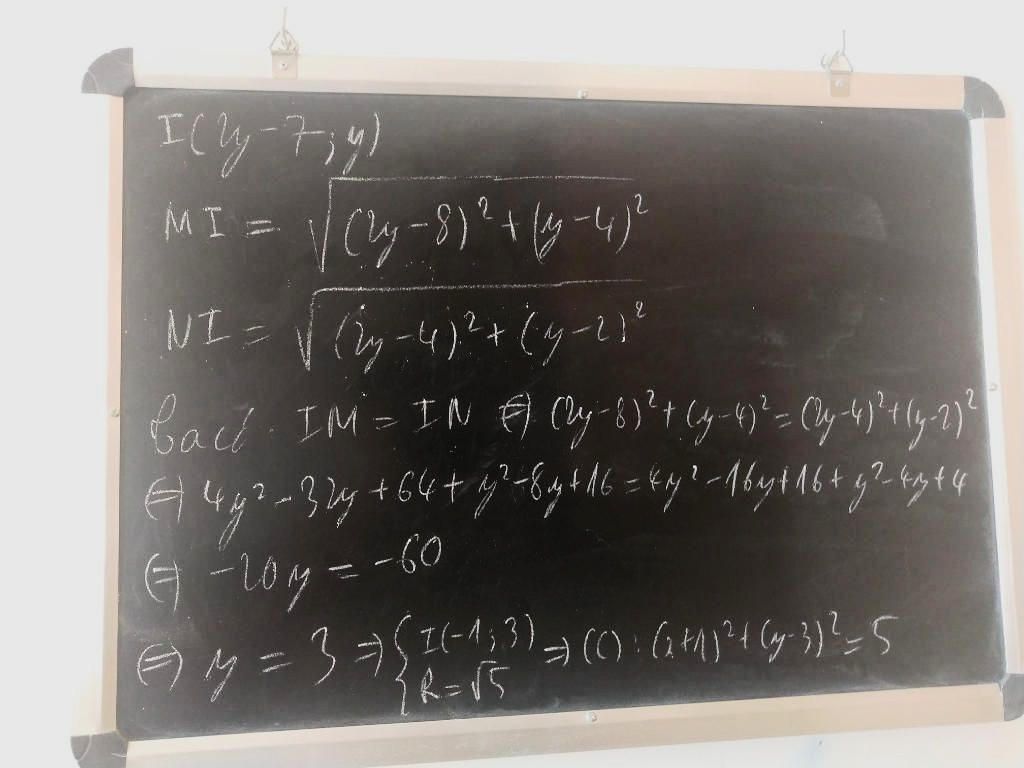 I(2y-7;y)
MI = √(2y-8)²+(y-4)²
NI = √(2y-4)²+(y-2)²
IM = IN ⇔ (2y-8)²+(y-4)²=(2y-4)²+(y-2)²
⇔ 4y²-32y+64+y²-8y+16=4y²-16y+16+y²-4y+4
⇔ -20y=-60
⇔ y=3 ⇒ { I(-1;3) R=√5 ⇒ (C): (x+1)²+(y-3)²=5